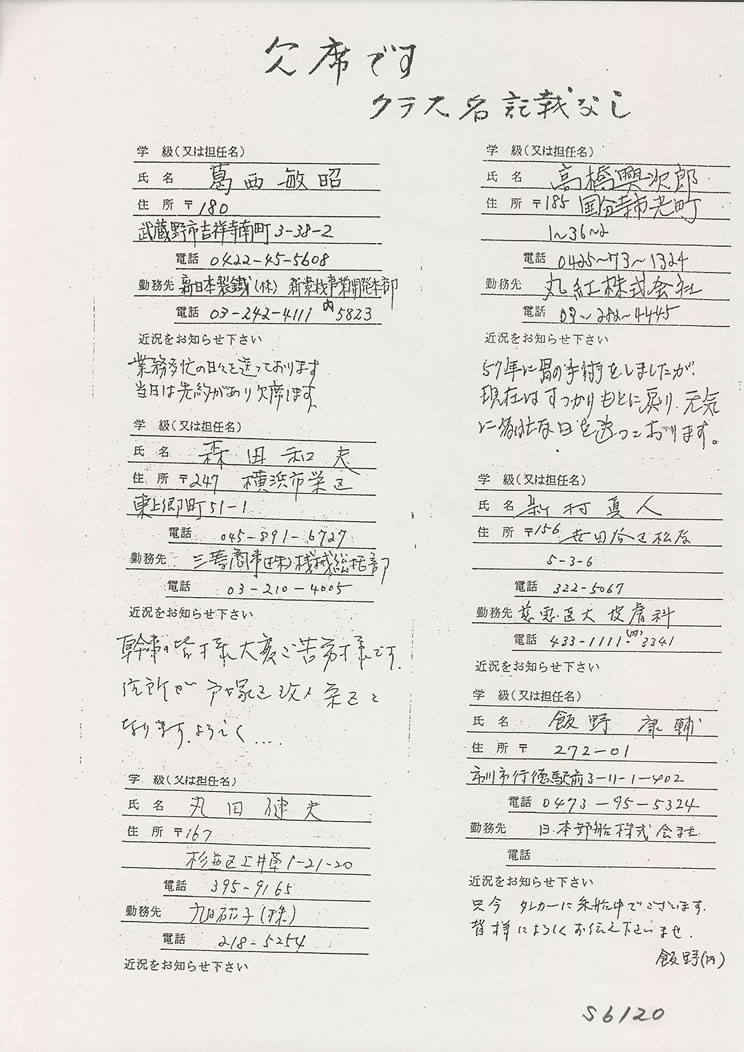 欠席です
クラス名記載なし
学 級(又は担任名)
氏 名 葛西敏昭
住 所 〒180
武蔵野市吉祥寺南町3-38-2
電話 0422-45-5608
勤務先 新日本製鐵(株) 新素材事業開発本部
電話 03-242-4111 内5823
近況をお知らせ下さい
業務多忙の日々を送っております
当日は先約があり欠席します
学 級(又は担任名)
氏 名 森田和夫
住 所 〒247 横浜市栄区
東上郷町51-1
電話 045-891-6727
勤務先 三菱商事(株)機械総括部
電話 03-210-4005
近況をお知らせ下さい
幹事の皆様大変ご苦労様です.
住所が戸塚区改メ栄区と
なります.よろしく....
学 級(又は担任名)
氏 名 丸田健夫
住 所 〒167
杉並区上井草1-21-20
電話 395-9165
勤務先 旭硝子(株)
電話 218-5254
近況をお知らせ下さい
学 級(又は担任名)
氏 名 高橋興次郎
住 所 〒185 国分寺市光町
1~36~2
電話 0425~73~1324
勤務先 丸紅株式会社
電話 03~282~4445
近況をお知らせ下さい
57年に胃の手術をしましたが、
現在はすっかりもとに戻り、元気
に多忙な日を送っております。
学 級(又は担任名)
氏 名 新村真人
住 所 〒156 世田谷区松原
5-3-6
電話 322-5067
勤務先 慈恵医大皮膚科
電話 433-1111-(内)3341
近況をお知らせ下さい
学 級(又は担任名)
氏 名 飯野康輔
住 所 〒 272-01
市川市行徳駅前3-11-1-402
電話 0473-95-5324
勤務先 日本郵船株式会社
電話
近況をお知らせ下さい
只今 タンカーに乗船中でございます.
皆様によろしくお伝え下さいませ.
飯野(内)
S6120